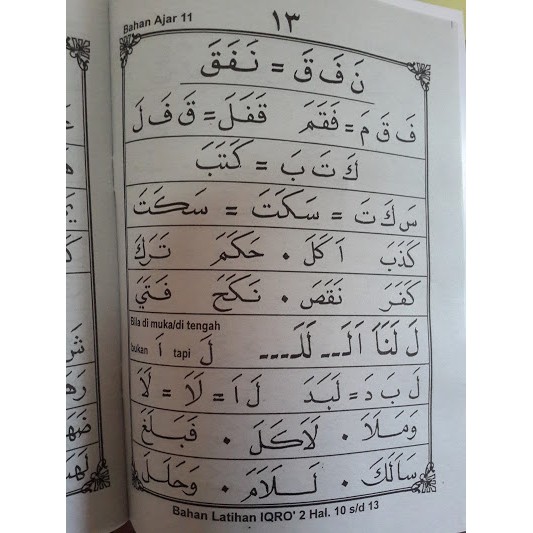 Bahan Ajar 11
١٣
نَ فَ قَ = نَفَقَ
فَ قَ مَ = فَقَمَ قَ فَ لَ = قَفَلَ
كَ تَ بَ = كَتَبَ
سَ كَ تَ = سَكَتَ = سَكَتَ
كَذَبَ اَكَلَ . حَكَمَ تَرَكَ
كَفَرَ نَقَصَ . نَكَحَ فَتَيَ
Bila di muka/di tengah
bukan اَ tapi لَ
لَ بَ دَ = لَبَدَ لَ اَ = لَا = لَا
وَمَلَاَ . لَاَكَلَ . فَبَلَغَ
سَاَلَكَ . لَــلَاَمَ . وَحَلَـلَ
Bahan Latihan IQRO' 2 Hal. 10 s/d 13